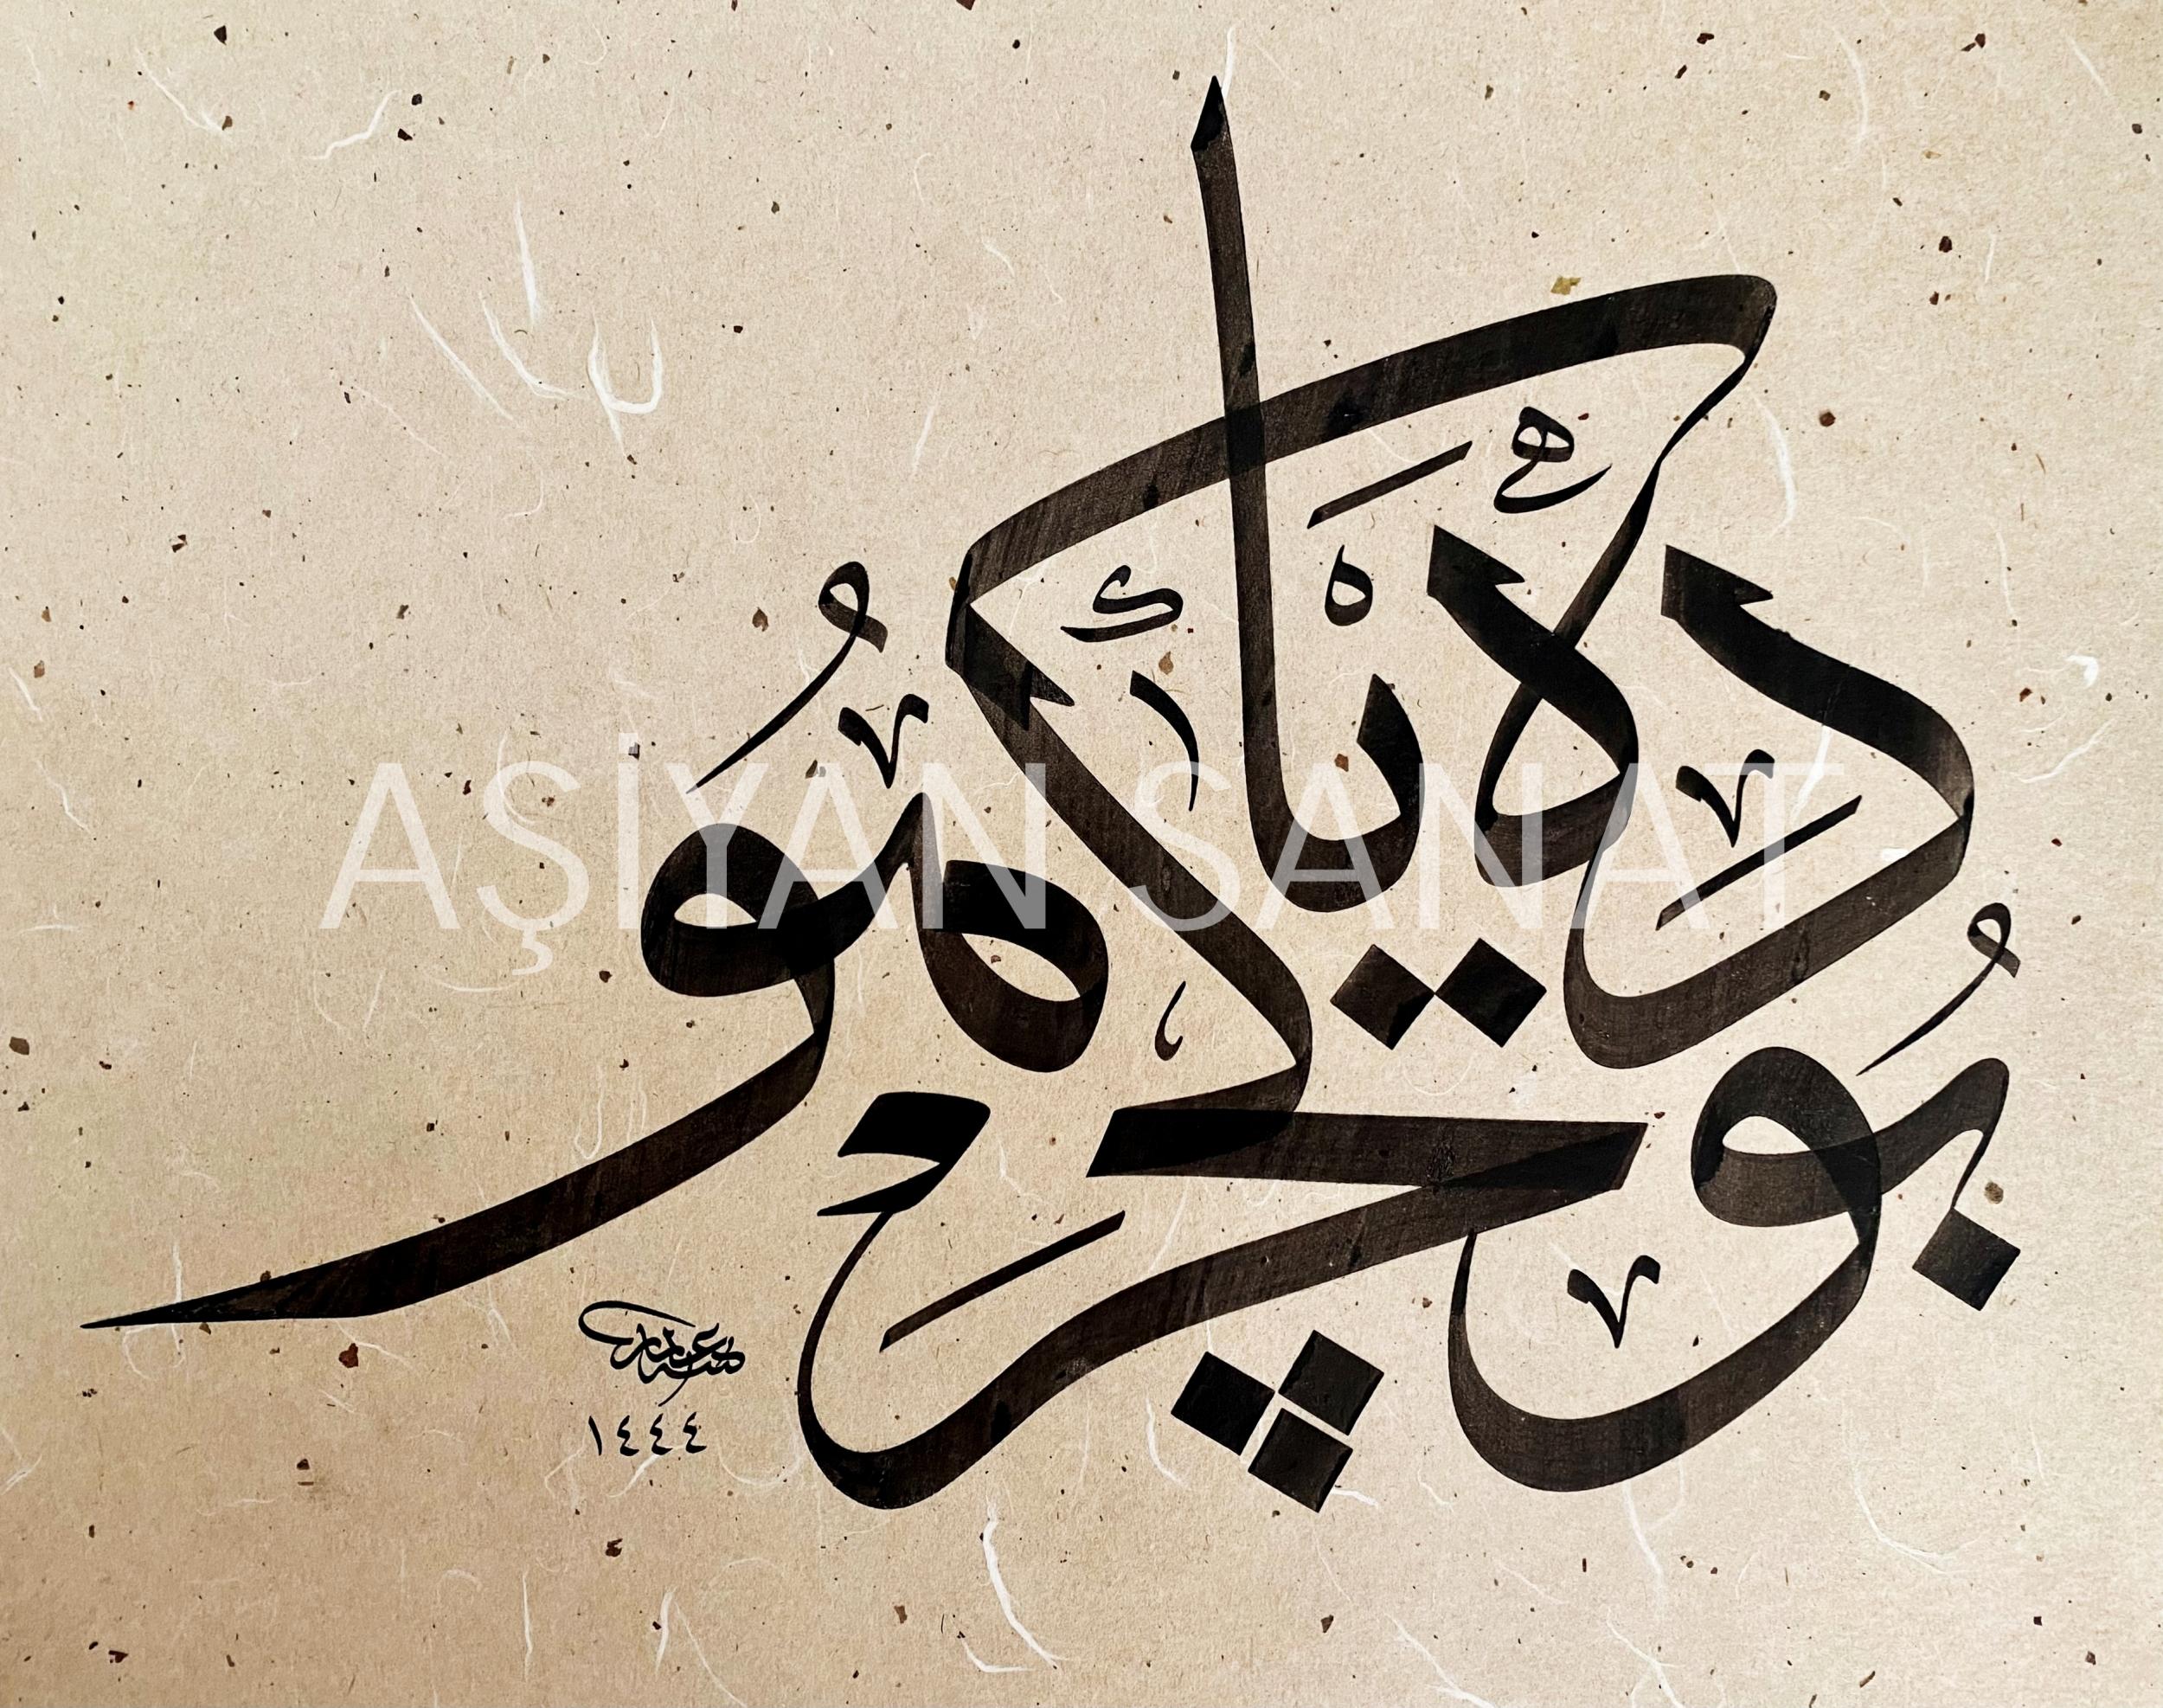 بو ده كچر يا هو
AŞİYAN SANAT
١٤٤٤